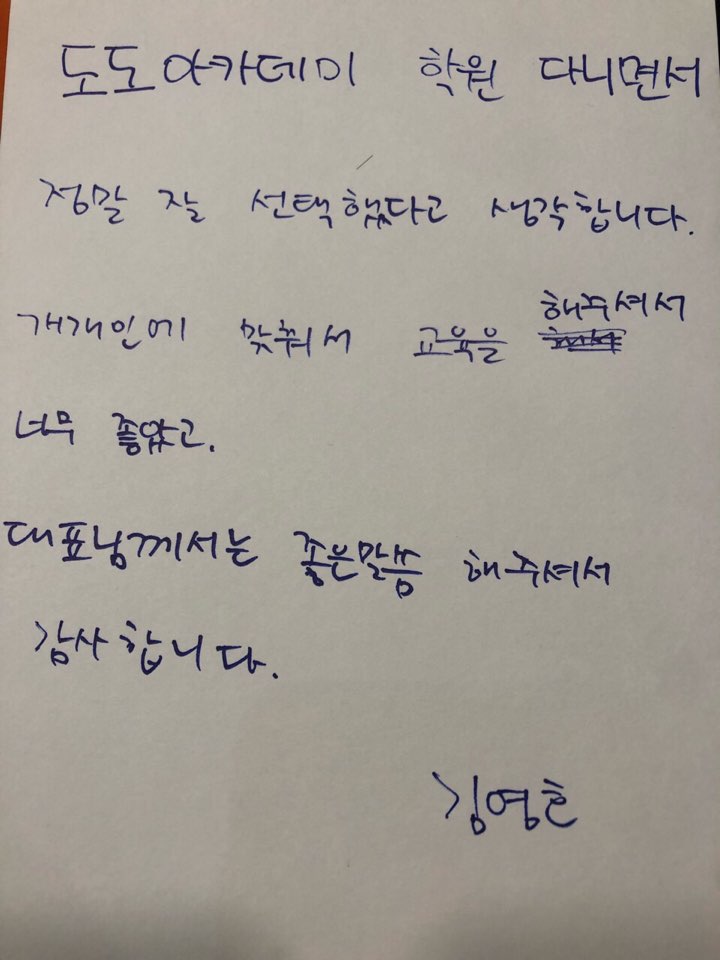 도도아카데미 학원 다니면서
정말 잘 선택했다고 생각합니다.
개개인에 맞춰서 교육을 해주셔서
너무 좋았고.
대표님께서는 좋은말씀 해주셔서
감사합니다.
김영호